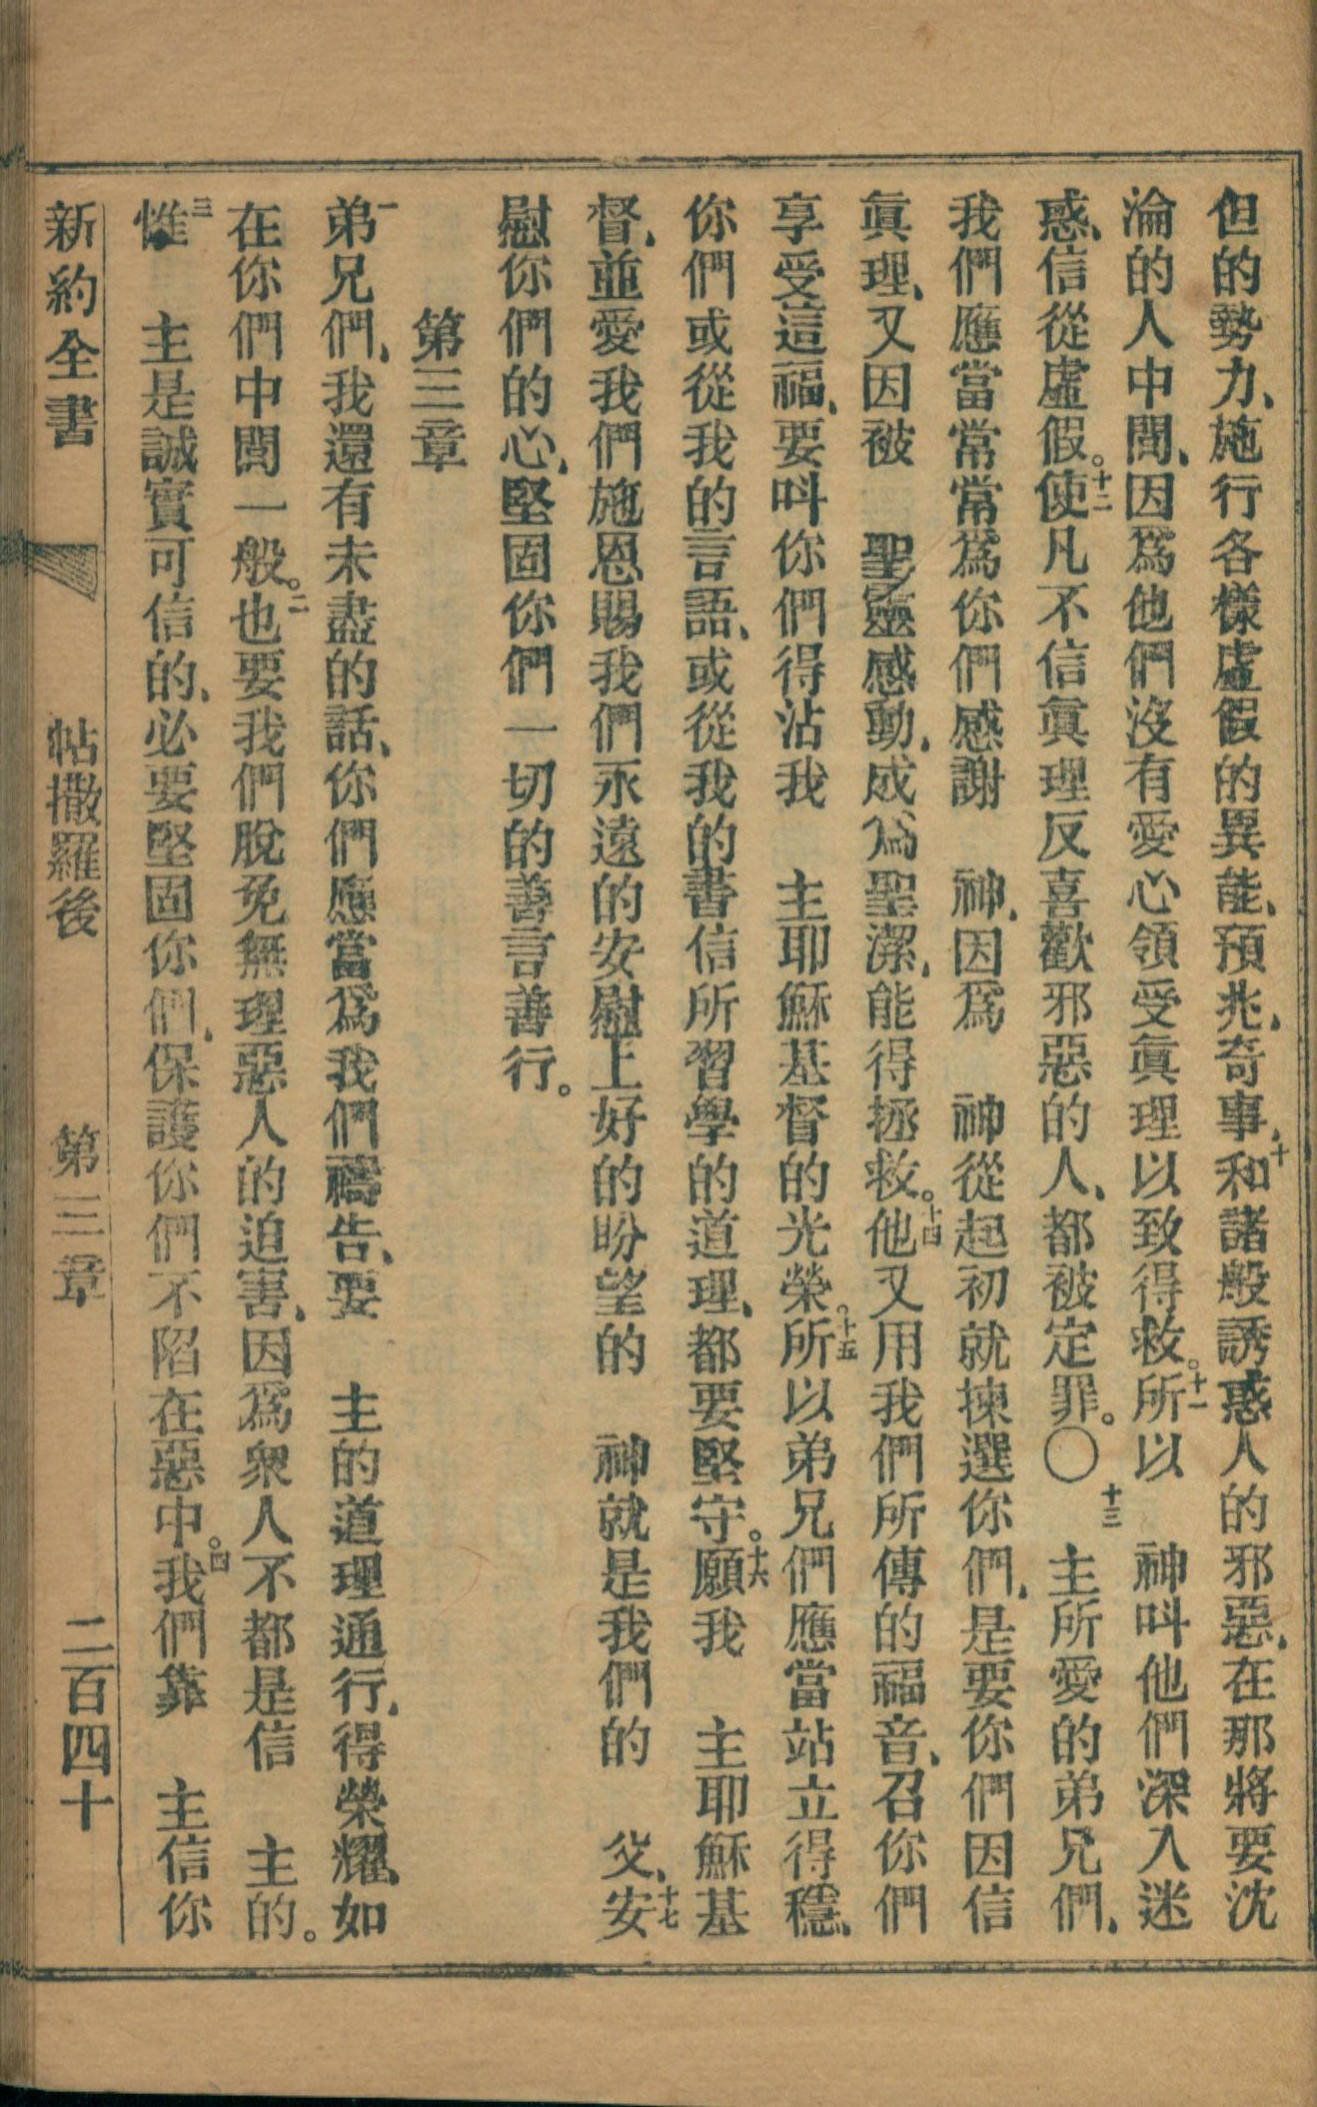 但的勢力、施行各樣虛假的異能、預兆、奇事、十和諸般誘惑人的邪惡、在那將要沈
淪的人中間、因爲他們沒有愛心領受眞理以致得救。十一所以　神叫他們深入迷
惑、信從虛假。十二使凡不信眞理反喜歡邪惡的人、都被定罪。〇十三　主所愛的弟兄們、
我們應當常常爲你們感謝　神、因爲　神從起初就揀選你們、是要你們因信
眞理、又因被　聖靈感動、成爲聖潔、能得拯救。十四他又用我們所傳的福音、召你們
享受這福、要呌你們得沾我　主耶穌基督的光榮。十五所以弟兄們應當站立得穩、
你們或從我的言語、或從我的書信所習學的道理、都要堅守。十六願我　主耶穌基
督、並愛我們施恩賜我們永遠的安慰上好的盼望的　神就是我們的　父、十七安
慰你們的心、堅固你們一切的善言善行。
第三章
一弟兄們、我還有未盡的話、你們應當爲我們禱告、要　主的道理通行、得榮耀、如
在你們中間一般。二也要我們脫免無理惡人的迫害、因爲衆人不都是信　主的。
三惟　主是誠實可信的、必要堅固你們、保護你們不陷在惡中。四我們靠　主信你
新約全書　帖撒羅後　第三章　二百四十